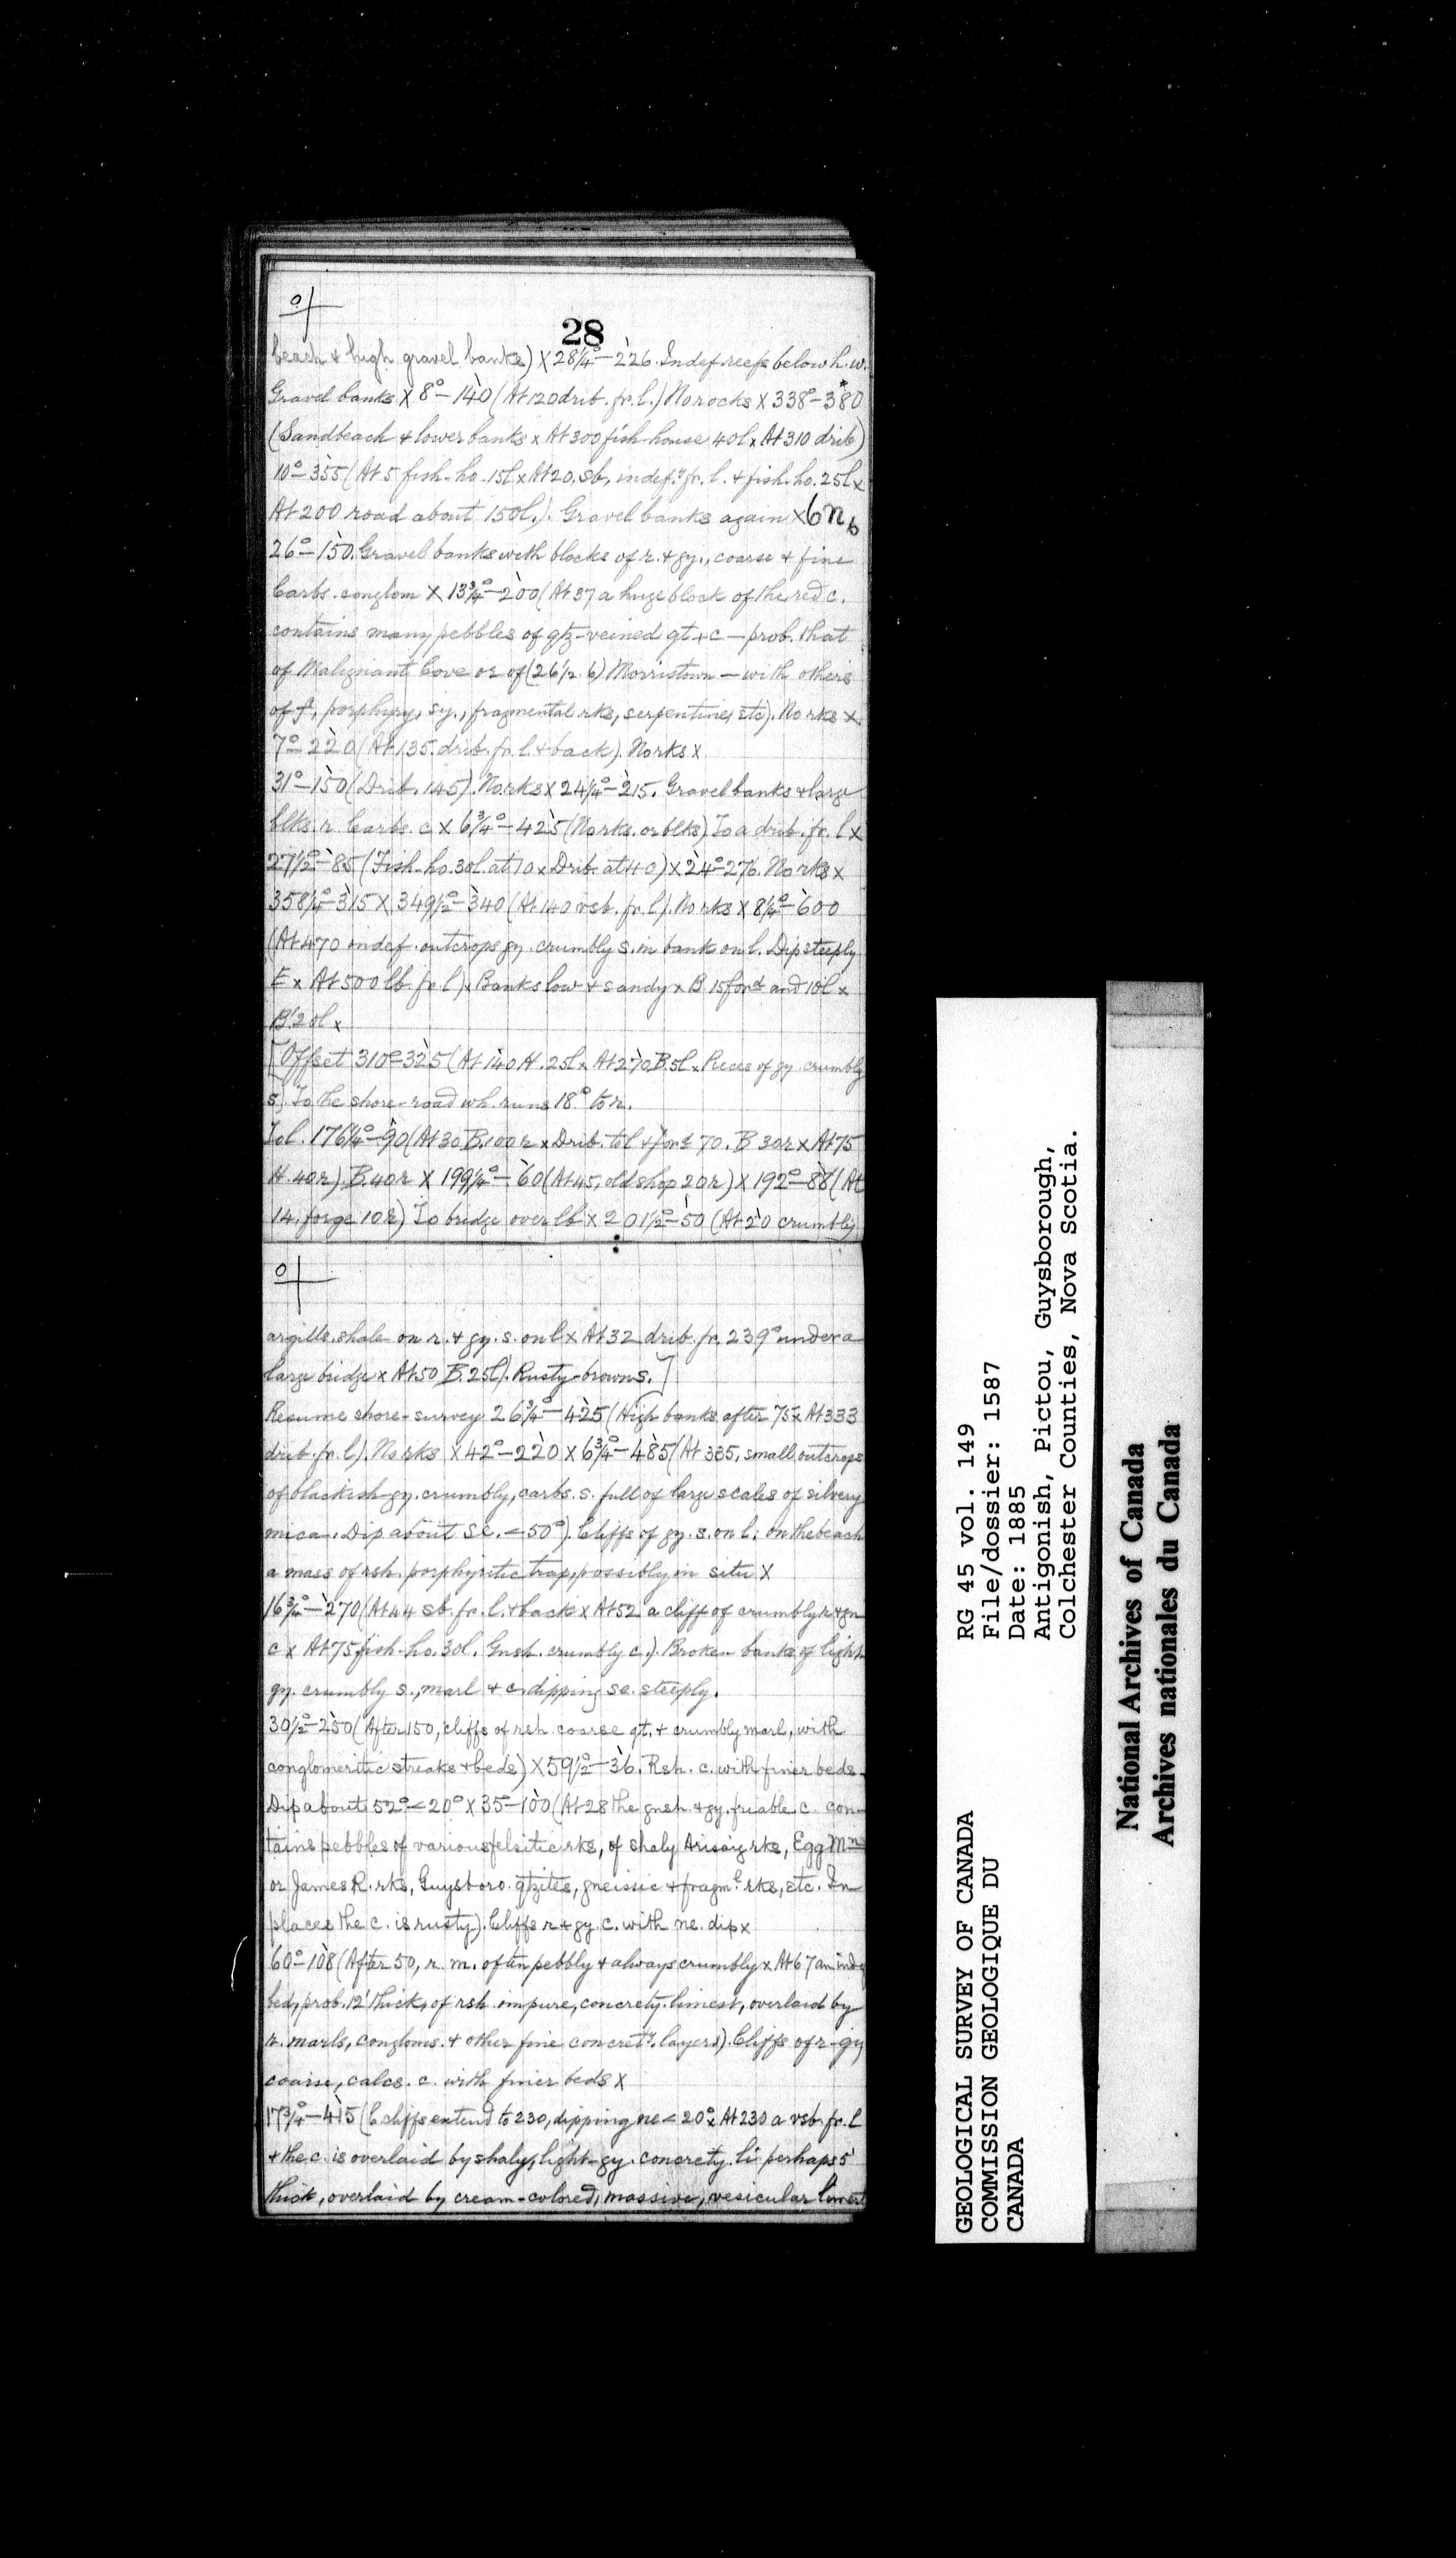 28
beach & high gravel banks) X 28¼°–226. Indef. reefs below h.w.
Gravel banks X 8°–140 (At 120 drib. fr. l.) No rocks X 338°–380
(Sandbeach & lower banks x At 300 fish-house 40l x At 310 drib)
10°–355 (At 5 fish-ho. 15l x At 20, sb, indef.ly fr. l. & fish-ho. 25l x
At 200 road about 150l.). Gravel banks again X 6n6
26°–150. Gravel banks with blocks of r. & gy., coarse & fine
Carbs. conglom X 13¾°–200 (At 37 a huge block of the red c.
contains many pebbles of qtz-veined qt. & c — prob. that
of Malignant Cove or of (26½ b) Morristown — with others
of f, porphyry, sy., fragmental rks, serpentines etc). No rks X
7°–220 (At 135. drib. fr. l. & back). No rks X
31°–150 (Drib. 145). No rks X 24¼°–215. Gravel banks & large
blks. r. Carbs. c X 6¾°–425 (No rks. or blks) To a drib. fr. l X
27½°–85 (Fish-ho. 30l. at 10 x Drib. at 40) X 24°–276. No rks X
358¼°–315 X 349½°–340 (At 140 vsb. fr. l). No rks X 8¼°–600
(At 470 indef. outcrops gy. crumbly s. in bank on l. Dip steeply
E x At 500 lb. fr. l) x Banks low & sandy x B 15 for'd and 10l x
B. 20l x
[Offset 310°–325 (At 140 H. 25l x At 270 B. 5l x Pieces of gy. crumbly
s). To the shore-road wh. runs 18° to r.
To l. 176¼°–90 (At 30 B. 100r x Drib. to l & for'd 70. B 30r x At 75
H. 40r) B. 40r X 199¼°–60 (At 45, old shop 20r) X 192°–88 (At
14, forge 10r) To bridge over lb X 201½°–50 (At 20 crumbly
argills. shale on r. & gy. s. on l x At 32 drib. fr. 239° under a
large bridge x At 50 B. 25l). Rusty-brown s.]
Resume shore-survey 26¾°–425 (High banks after 75 x At 333
drib. fr. l). No rks X 42°–220 X 6¾°–485 (At 335, small outcrops
of blackish-gy. crumbly, carbs. s. full of large scales of silvery
mica. Dip about se. <50°). Cliffs of gy. s. on l: on the beach
a mass of rsh. porphyritic trap, possibly in situ X
16¾°–270 (At 44 sb. fr. l. & back x At 52 a cliff of crumbly r & gn
c x At 75 fish-ho. 30l. Gnsh. crumbly c.). Broken banks of light
gy. crumbly s., marl & c. dipping se. steeply.
30½°–250 (After 150, cliffs of rsh. coarse qt. & crumbly marl, with
conglomeritic streaks & beds) X 59½°–36. Rsh. c. with finer beds.
Dip about 52° <20° X 35°–100 (At 28 the gnsh. & gy. friable c. con-
tains pebbles of various felsitic rks, of shaly Arisaig rks, Egg Mn
or James R. rks, Guysboro. qtzites, gneissic & fragml. rks, etc. In
places the c. is rusty). Cliffs r & gy c. with ne. dip x
60°–108 (After 50, r. m. often pebbly & always crumbly x At 67 an indef
bed, prob. 12' thick, of rsh. impure, concrety. limest, overlaid by
r. marls, congloms. & other fine concrety. layers). Cliffs of r-gy
coarse, calcs. c. with finer beds X
17¾°–415 (C cliffs extend to 230, dipping ne <20° x At 230 a vsb. fr. l
& the c. is overlaid by shaly, light-gy. concrety. li perhaps 5'
thick, overlaid by cream-colored, massive, vesicular limest
GEOLOGICAL SURVEY OF CANADA
COMMISSION GEOLOGIQUE DU
CANADA
RG 45 vol. 149
File/dossier: 1587
Date: 1885
Antigonish, Pictou, Guysborough,
Colchester Counties, Nova Scotia.
National Archives of Canada
Archives nationales du Canada